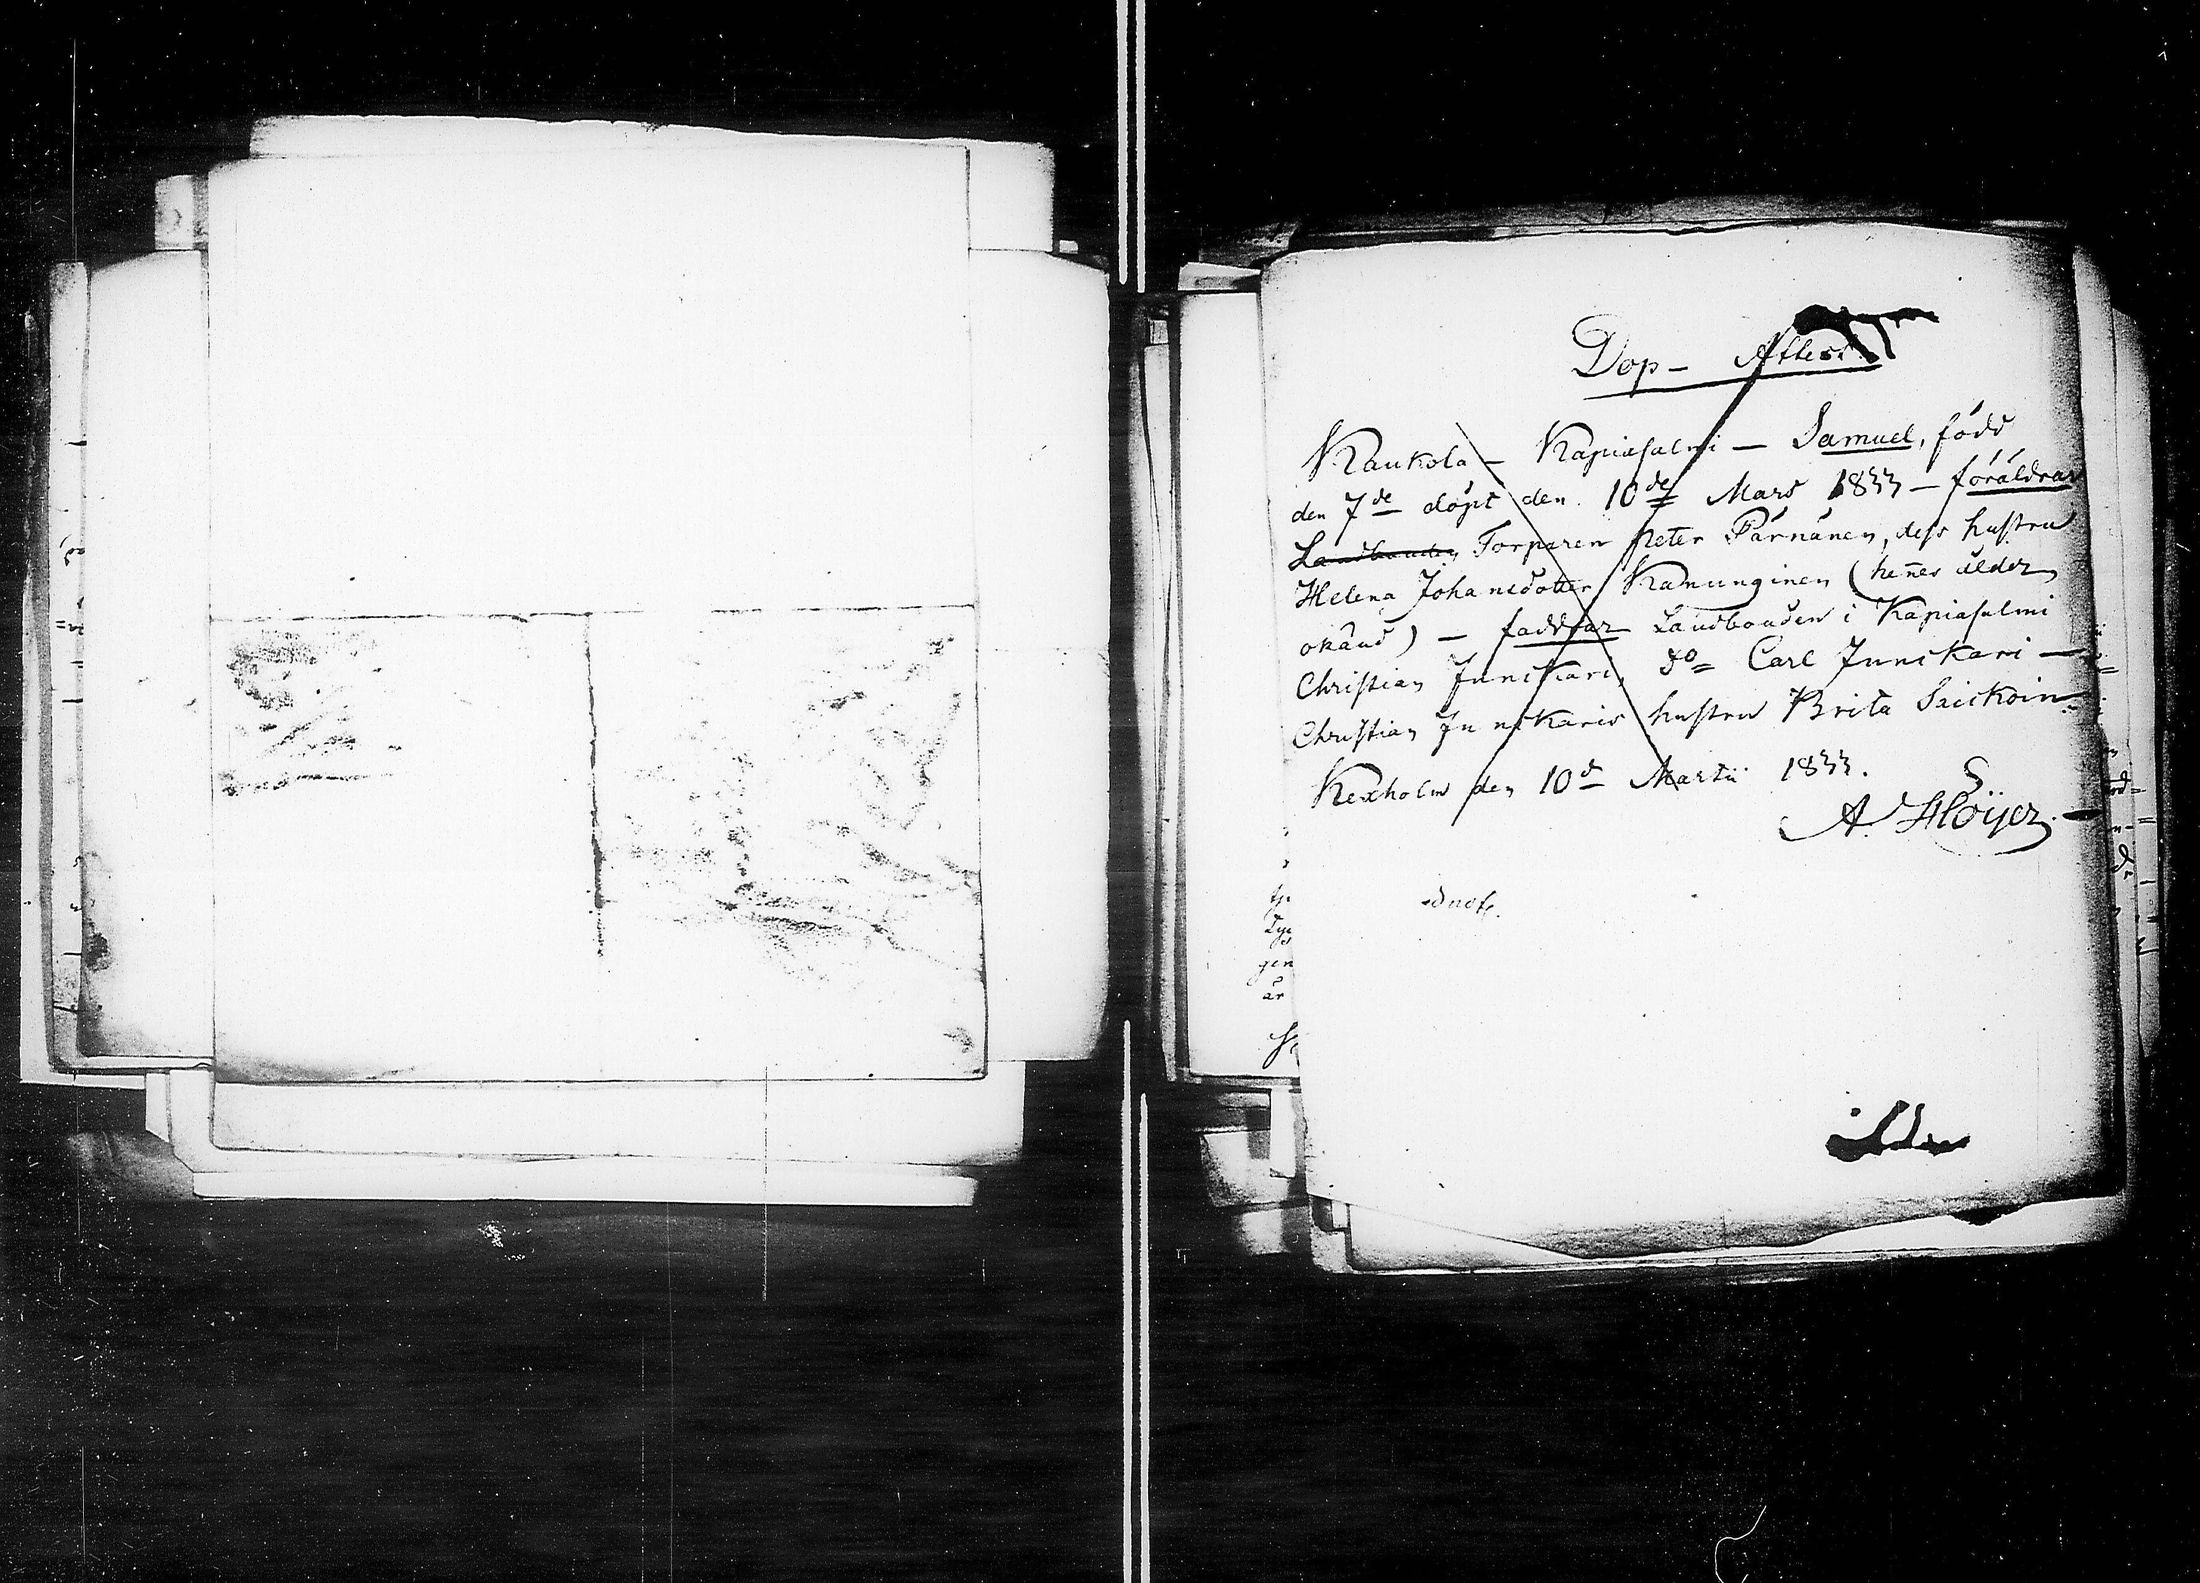 Dop- Attest
Kaukola - Kapiasalmi - Samuel, född
den 7de döpt den 10de Mars 1833 - föräldrar
Landbonden Torparen Peter Pärnänen, dess hustru
Helena Johansdotter Kanunginen (hen̄es ålder
okänd) - faddrar Landbonden i Kapiasalmi
Christian Junskari, do Carl Junskari -
Christian Junskaris hustru Brita
Kexholm den 10de Martii 1833.
A. Höijer.